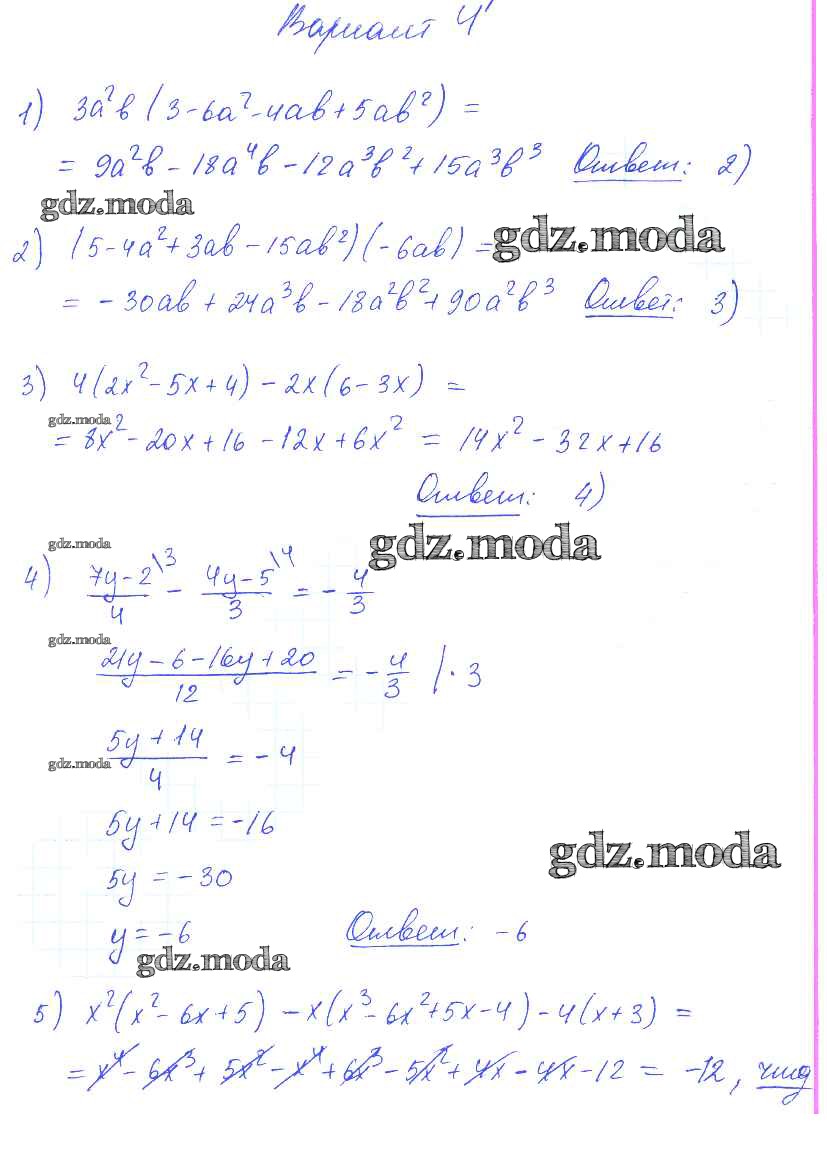 Вариант 4
1) 3a²b (3 - 6a² - 4ab + 5ab²) =
= 9a²b - 18a⁴b - 12a³b² + 15a³b³ Ответ: 2)
gdz.moda
2) (5 - 4a² + 3ab - 15ab²)(-6ab) = gdz.moda
= -30ab + 24a³b - 18a²b² + 90a²b³ Ответ: 3)
3) 4(2x² - 5x + 4) - 2x(6 - 3x) =
gdz.moda
= 8x² - 20x + 16 - 12x + 6x² = 14x² - 32x + 16
Ответ: 4)
gdz.moda gdz.moda
4) (7y - 2)\3 / 4 - (4y - 5)\4 / 3 = - 4/3
gdz.moda
(21y - 6 - 16y + 20) / 12 = - 4/3 | · 3
(5y + 14) / 4 = -4
gdz.moda
5y + 14 = -16
gdz.moda
5y = -30
y = -6 Ответ: -6
gdz.moda
5) x²(x² - 6x + 5) - x(x³ - 6x² + 5x - 4) - 4(x + 3) =
= x⁴ - 6x³ + 5x² - x⁴ + 6x³ - 5x² + 4x - 4x - 12 = -12, чтд